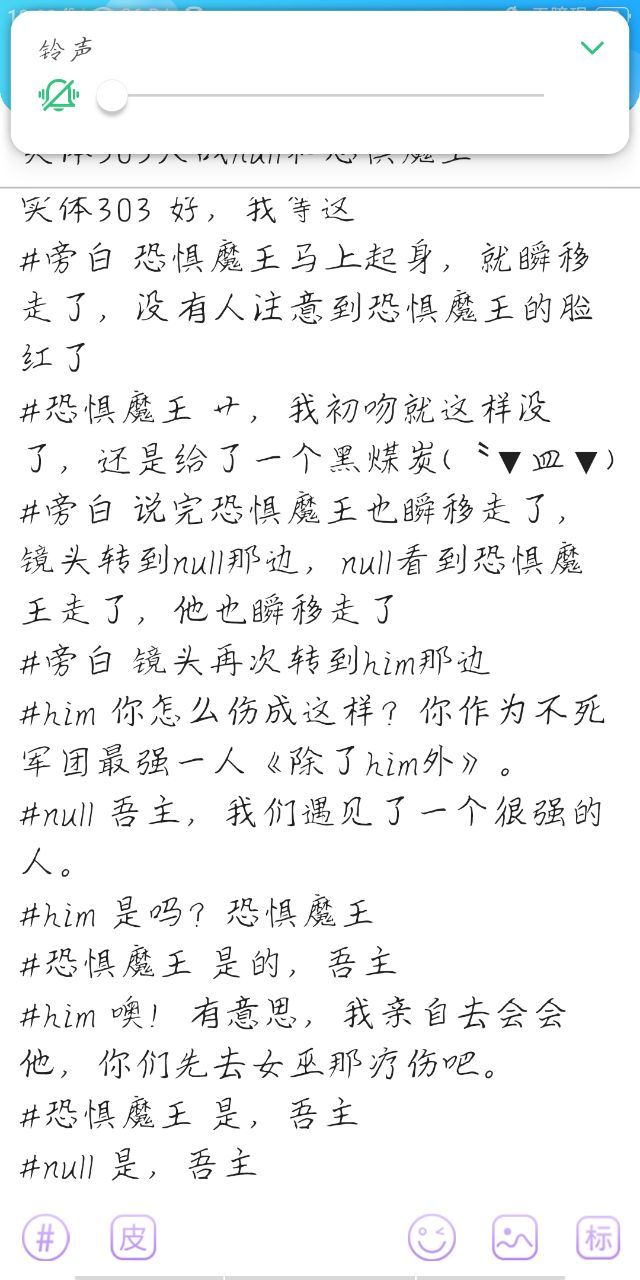 铃声
实体303 好，我等这
#旁白 恐惧魔王马上起身，就瞬移
走了，没有人注意到恐惧魔王的脸
红了
#恐惧魔王 艹，我初吻就这样没
了，还是给了一个黑煤炭(〝▼皿▼)
#旁白 说完恐惧魔王也瞬移走了，
镜头转到null那边，null看到恐惧魔
王走了，他也瞬移走了
#旁白 镜头再次转到him那边
#him 你怎么伤成这样？你作为不死
军团最强一人《除了him外》。
#null 吾主，我们遇见了一个很强的
人。
#him 是吗？恐惧魔王
#恐惧魔王 是的，吾主
#him 噢！有意思，我亲自去会会
他，你们先去女巫那疗伤吧。
#恐惧魔王 是，吾主
#null 是，吾主
# 皮 标